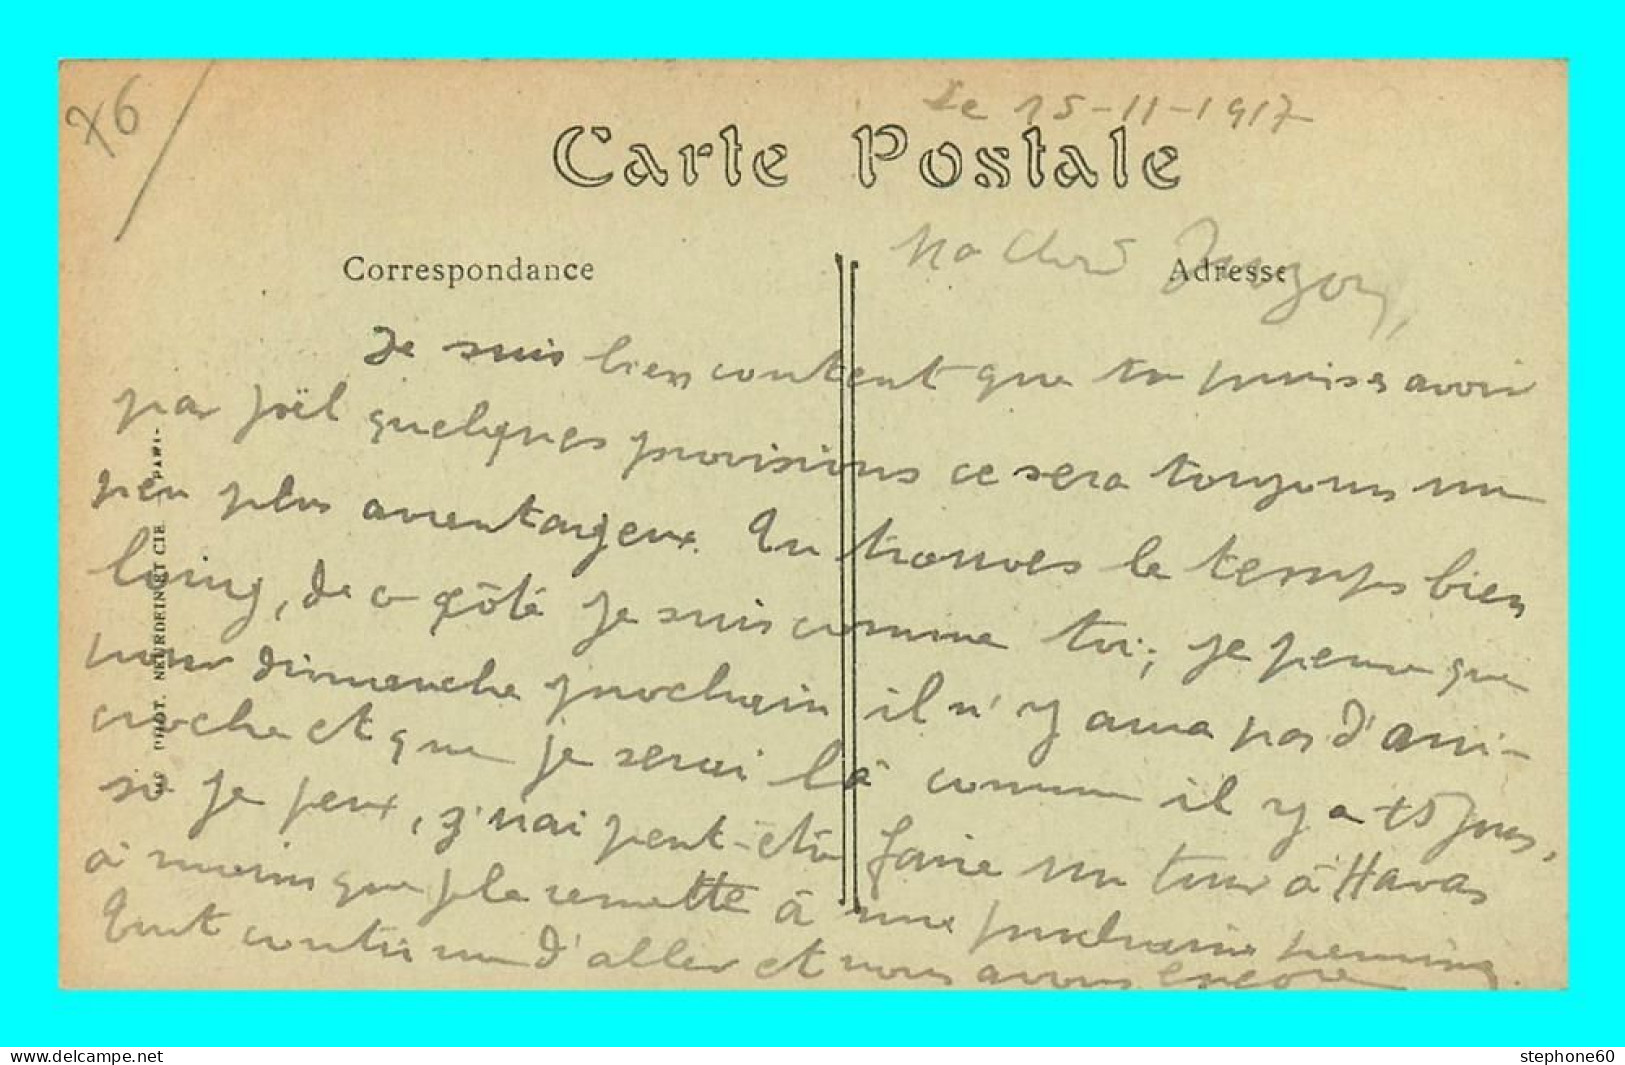 76
Le 15-11-1917
Carte Postale
Ma Chère Suzon,
Correspondance
Adresse
Je suis bien content que tu puisses avoir
par Joël quelques provisions ce sera toujours un
peu plus aventageux. Tu trouves le temps bien
loing, de ce côté je suis comme toi; je pense que
pour dimanche prochain il n'y aura pas d'ani-
croche et que je serai là comme il y a 15 jours,
si je peux, j'irai peut-être faire un tour à Havas
à moins que j le remette à une prochaine perming.
Tout continue d'aller et nous avons encore
PHOT. NEURDEIN ET CIE. - PARIS
stephone60
www.delcampe.net